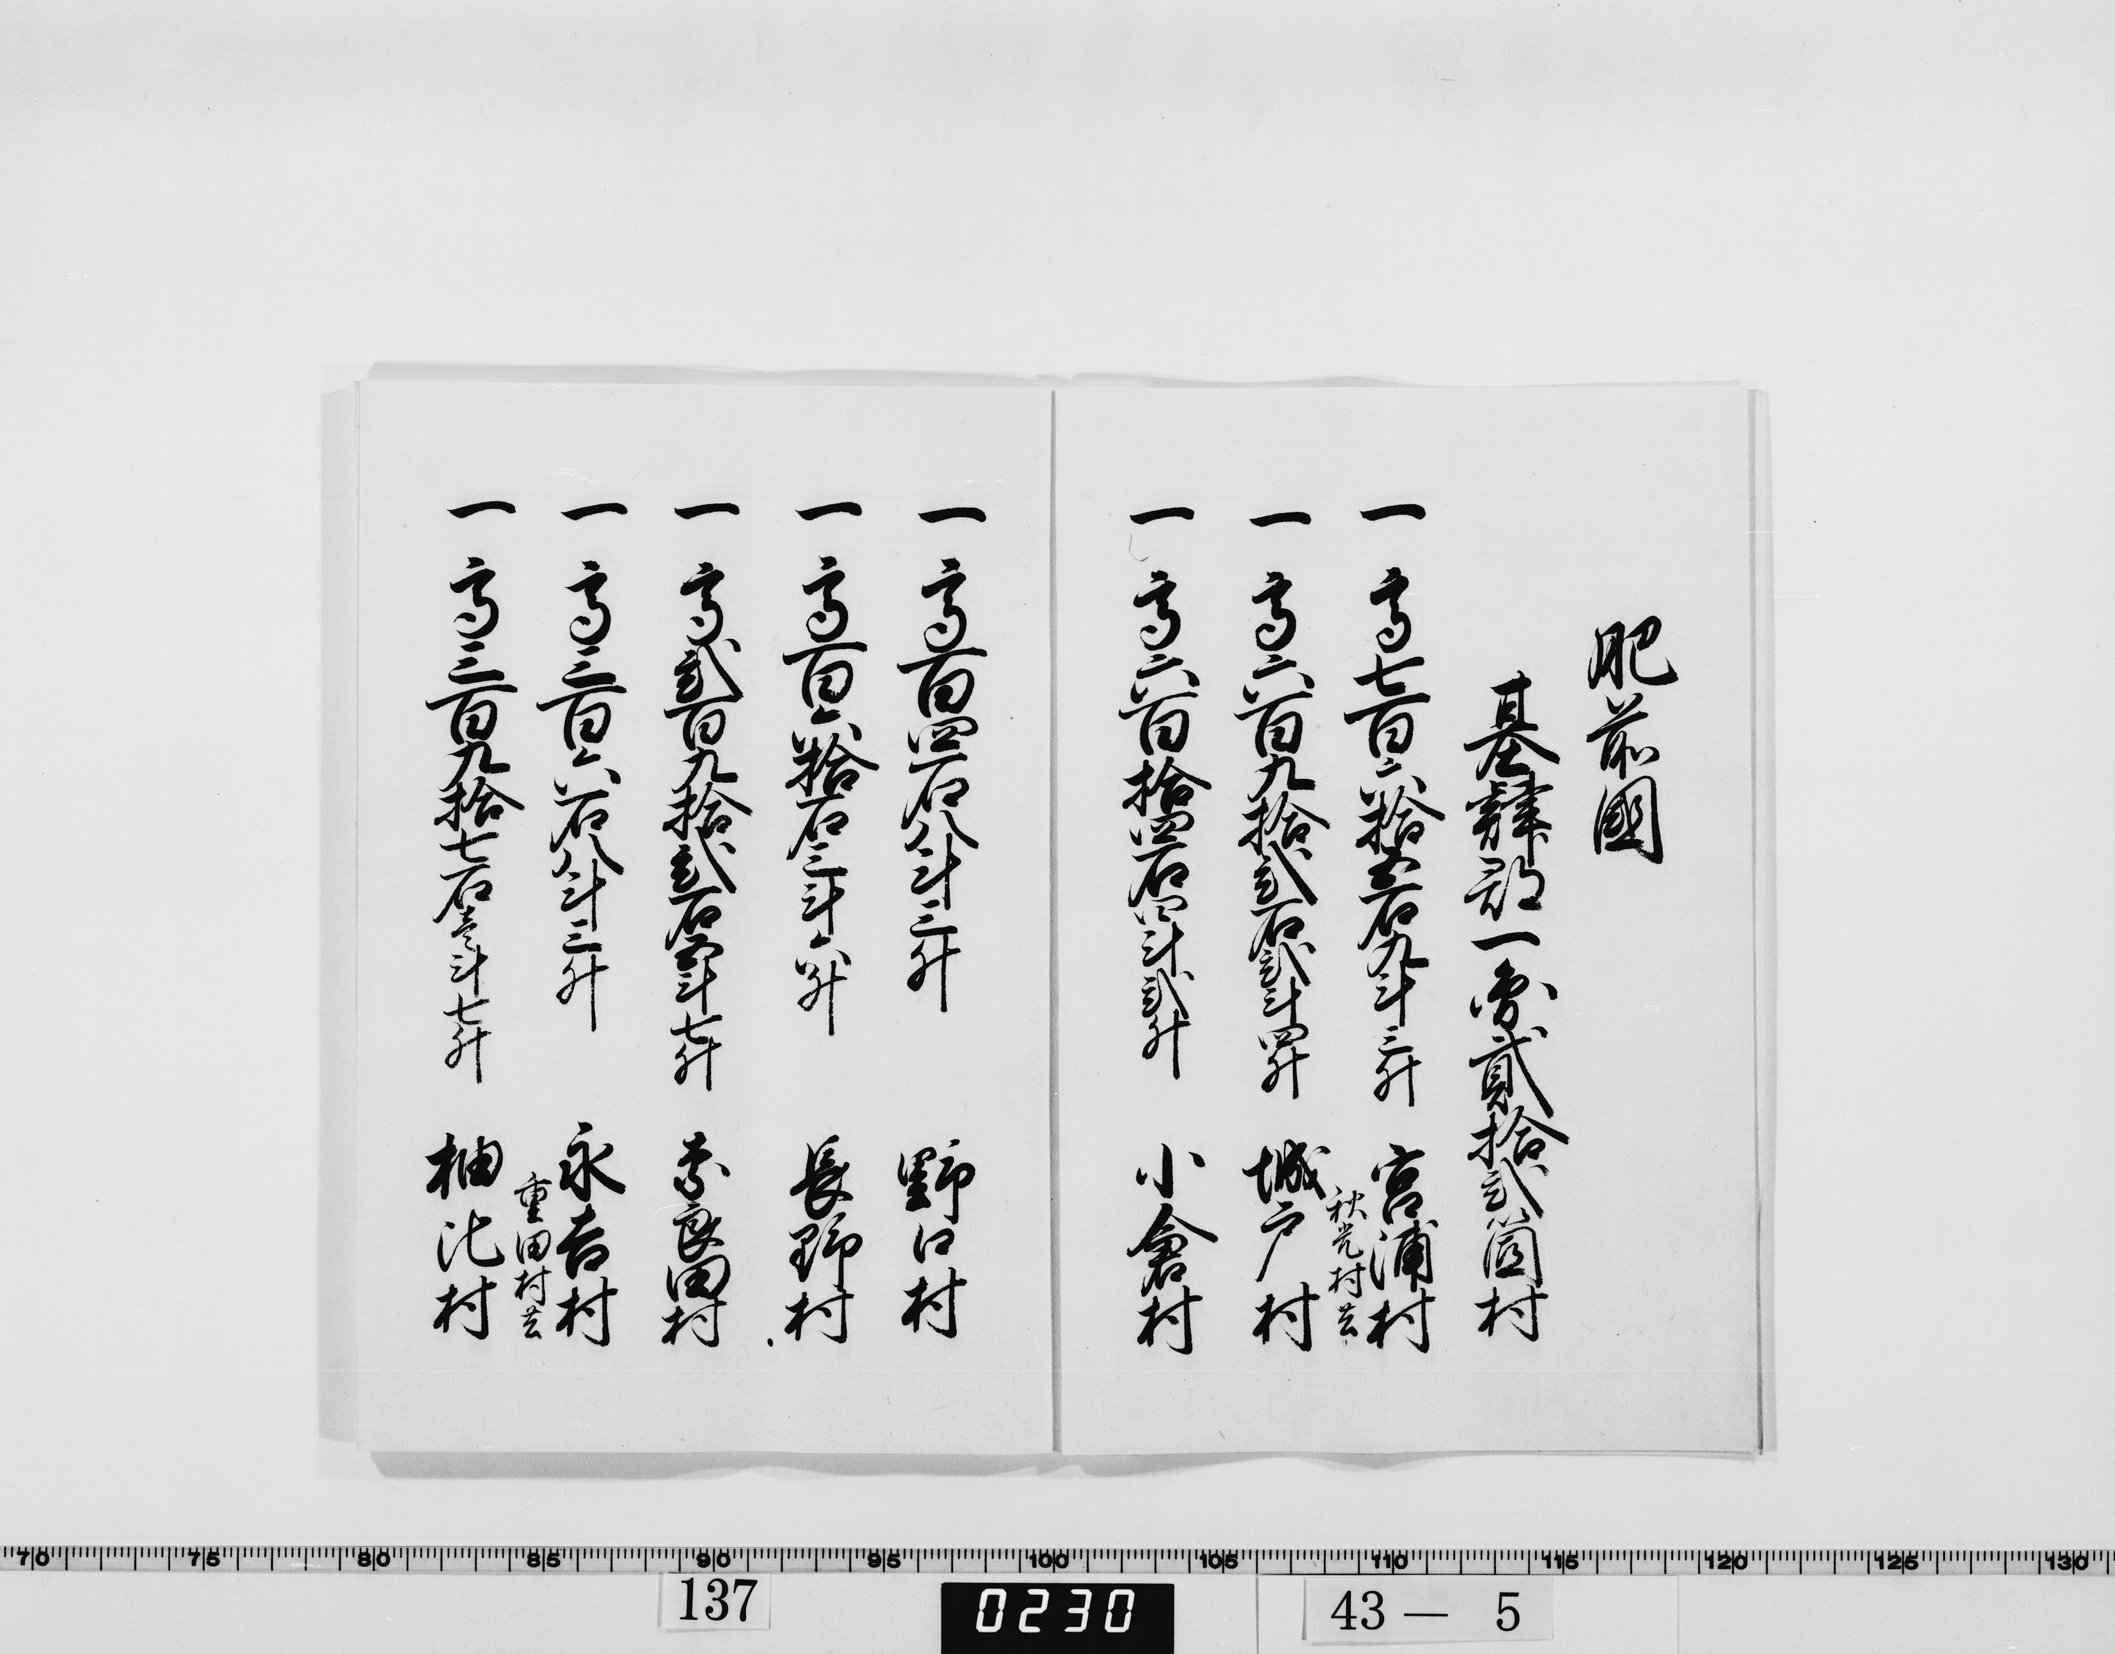 肥前國
基肄郡一圓貳拾弐箇村
一 高七百六拾五石九斗三升 宮浦村
秋光村共
一 高六百九拾弐石弐斗四升 城戸村
一 高六百拾四石四斗弐升 小倉村
一 高百四石八斗三升 野口村
一 高百六拾石三斗六升 長野村
一 高弐百九拾弐石五斗七升 奈良田村
一 高三百六石八斗三升 永吉村
重田村共
一 高三百九拾七石壱斗七升 柚比村
70 75 80 85 90 95 100 105 110 115 120 125 130
137
0230
43 — 5